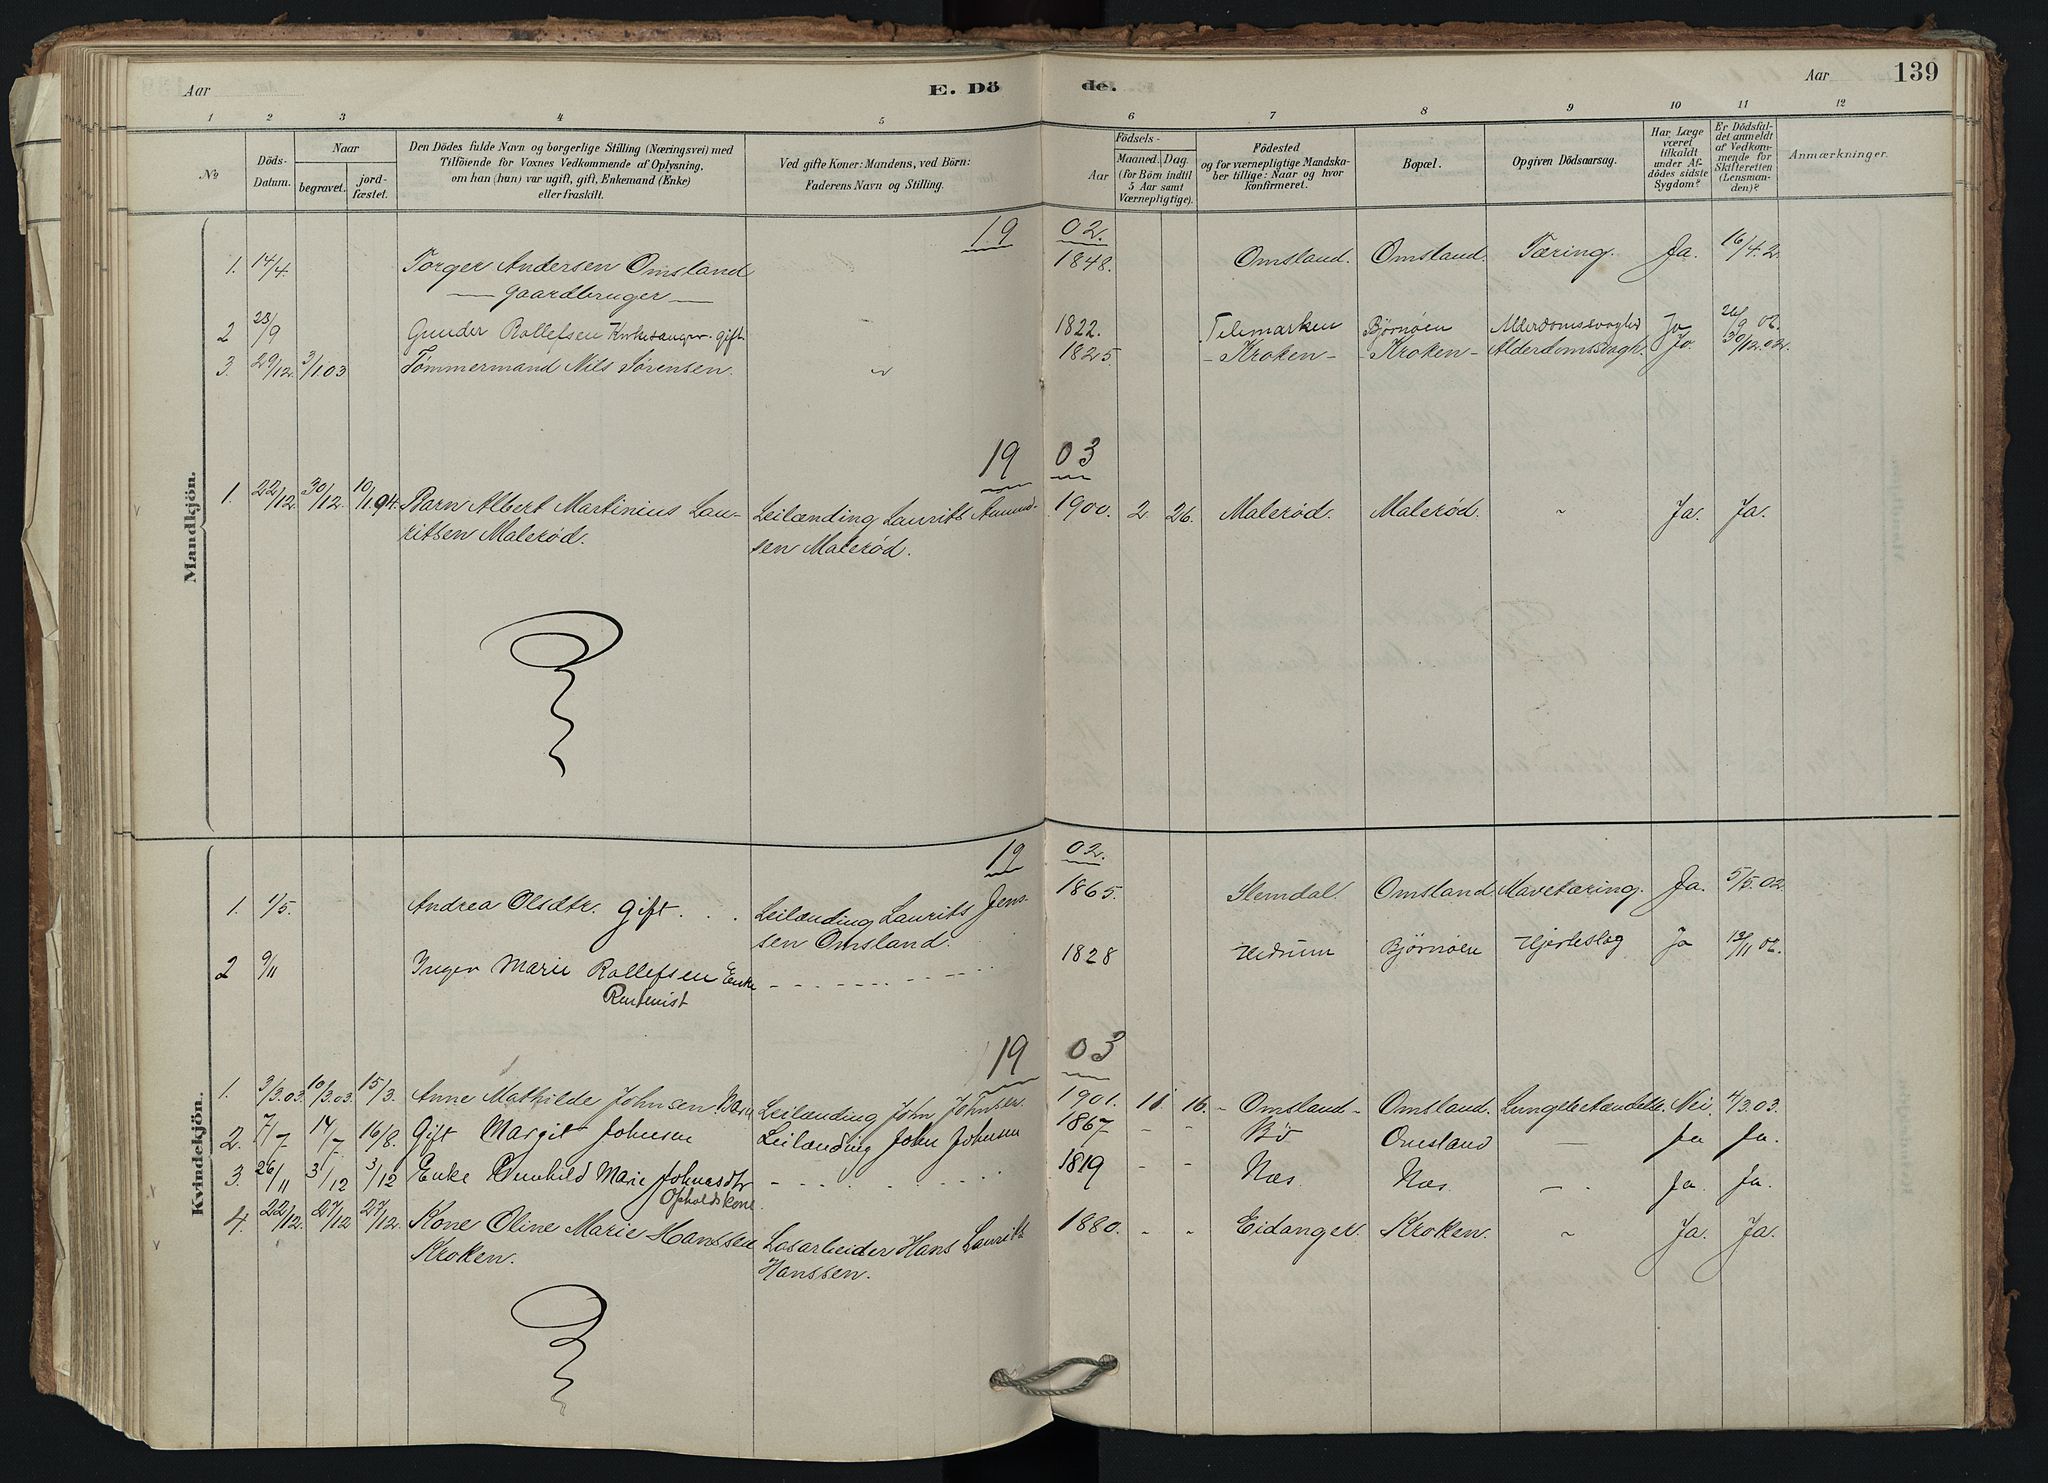 Aar E. Dö de. Aar 139
1 2 3 4 5 6 7 8 9 10 11 12
No
Döds-Datum.
Naar
begravet. jord-fæstet.
Den Dödes fulde Navn og borgerlige Stilling (Næringsvei) med
Tilföiende for Voxnes Vedkommende af Oplysning,
om han (hun) var ugift, gift, Enkemand (Enke)
eller fraskilt.
Ved gifte Koner: Mandens, ved Börn:
Faderens Navn og Stilling.
Födsels-
Aar
Maaned. Dag.
(for Börn indtil
5 Aar samt
Værnepligtige).
Födested
og for værnepligtige Mandska-
ber tillige: Naar og hvor
konfirmeret.
Bopæl.
Opgiven Dödsaarsag.
Har Læge
været
tilkaldt
under Af-
dödes sidste
Sygdom?
Er Dödsfal-
det anmeldt
af Vedkom-
mende for
Skifteretten
(Lensman-
den)?
Anmærkninger.
Mandkjön.
19 02.
1. 14/4. Torger Andersen Omsland 1848. Omsland. Omsland. Tæring. Ja. 16/4.2.
— Gaardbruger —
2 23/9 Gunder Rollefsen Kirkesanger. gift. 1822. Telemarken Bjørnøen Alderdomssvaghed Ja 26/9 02.
3. 29/12. 3/1.03 Tømmermand Nils Sørensen. " 1825. - Kroken - - Kroken - Alderdomssvagh. Ja. 30/12.02.
19 03
1. 22/12. 30/12. 10/1.04. Barn Albert Martinius Lau- Leilænding Laurits Amund- 1900. 2. 26. Malerød. Malerød. " Ja. Ja.
ritsen Malerød. sen Malerød.
Kvindekjön.
19 02.
1. 1/5. Andrea Olsdtr. Gift. . . Leilænding Laurits Jens- 1865. Slemdal. Omsland. Mavetæring. Ja. 5/5.02.
sen Omsland.
2 9/11 Inger Marie Rollefsen Enke - - - - - - - 1828 Hedrum Bjørnøen Hjerteslag Ja 12/11 02.
Rentenist
19 03
1. 3/3.03. 10/3.03. 15/3. Anne Mathilde Johnsen Barn Leilænding John Johnsen 1901. 11. 16. - Omsland - Omsland. Lungebetændelse. Nei. 4/3.03.
2. 7/7 14/7 16/8. Gift Margit Johnsen Leilænding John Johnsen 1867 - - Bø Omsland — Ja Ja.
3. 26/11 3/12 3/12 Enke Gunhild Marie Johnsdtr - - - - - - 1819 - - Næs. Næs. — . Ja. Ja.
Opholdskone.
4. 22/12. 27/12 27/12. Kone Oline Marie Hanssen Løsarbeider Hans Laurits 1880. - - Eidanger. Kroken. " Ja. Ja.
Kroken. Hanssen.